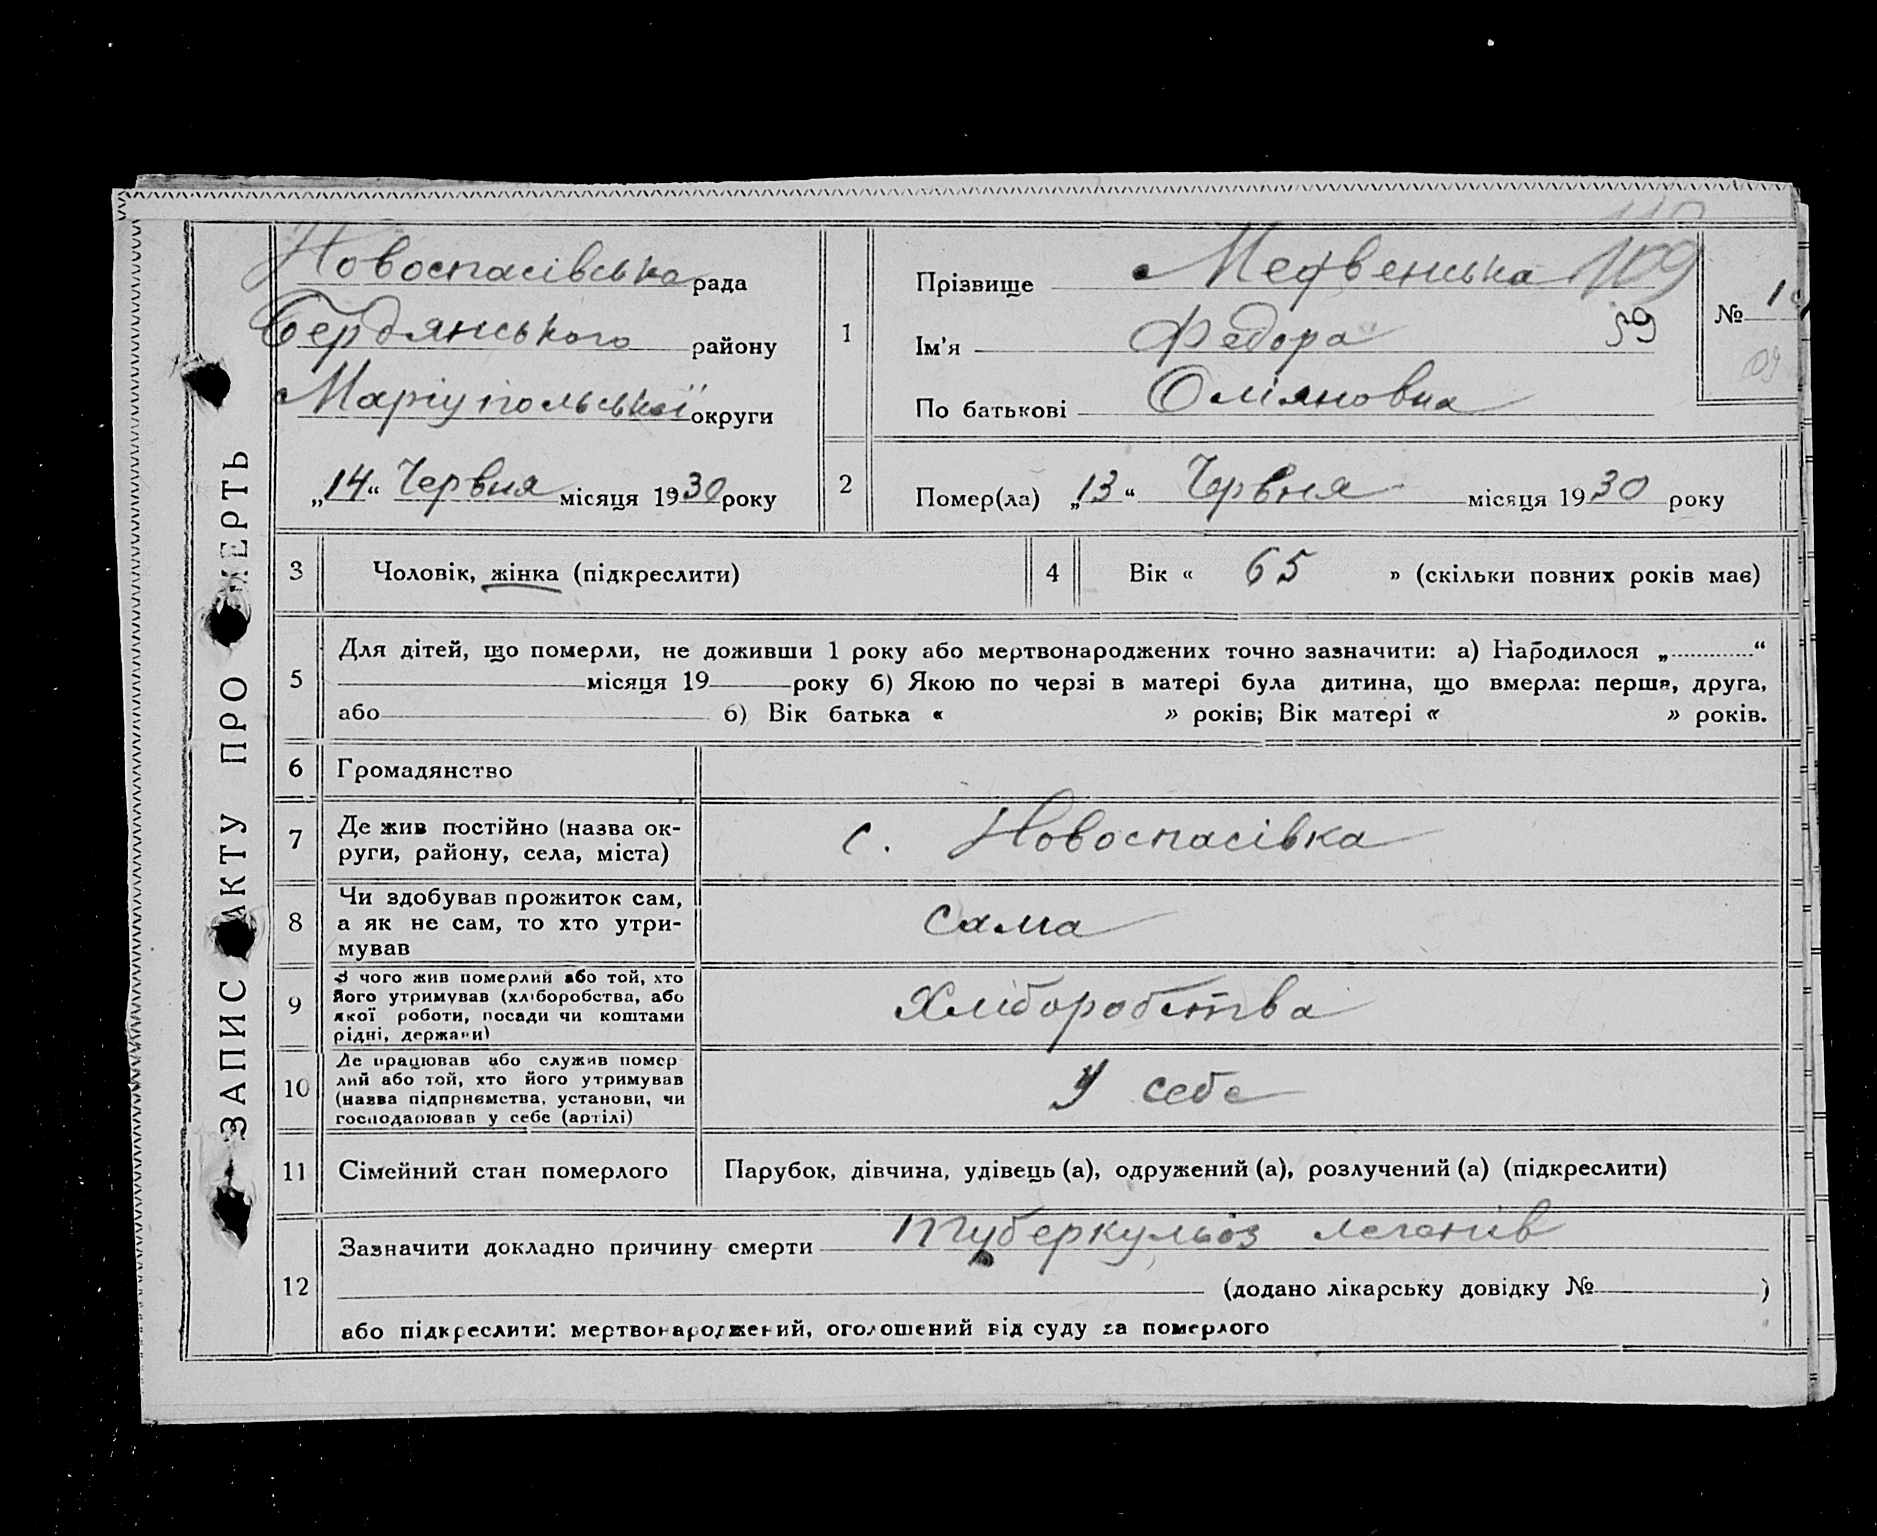 ЗАПИС АКТУ ПРО СМЕРТЬ
Новоспасівська рада
Бердянського району
Маріупольської округи
„14“ Червня місяця 1930 року
1
Прізвище Медвенська 109
Ім'я Федора 59
По батькові Омляновна
№
2
Помер(ла) „13“ Червня місяця 1930 року
3 Чоловік, жінка (підкреслити)
4 Вік « 65 » (скільки повних років має)
5
Для дітей, що померли, не доживши 1 року або мертвонароджених точно зазначити: а) Народилося „ “
місяця 19 року б) Якою по черзі в матері була дитина, що вмерла: перша, друга,
або б) Вік батька « » років; Вік матері « » років.
6 Громадянство
7 Де жив постійно (назва ок-
руги, району, села, міста)
с. Новоспасівка
8 Чи здобував прожиток сам,
а як не сам, то хто утри-
мував
сама
9 З чого жив померлий або той, хто
його утримував (хліборобства, або
якої роботи, посади чи коштами
рідні, держави)
Хліборобства
10 Де працював або служив помер
лий або той, хто його утримував
(назва підприємства, установи, чи
господарював у себе (артілі)
У себе
11 Сімейний стан померлого
Парубок, дівчина, удівець (а), одружений (а), розлучений (а) (підкреслити)
12
Зазначити докладно причину смерти туберкульоз легенів
(додано лікарську довідку № )
або підкреслити: мертвонароджений, оголошений від суду за померлого